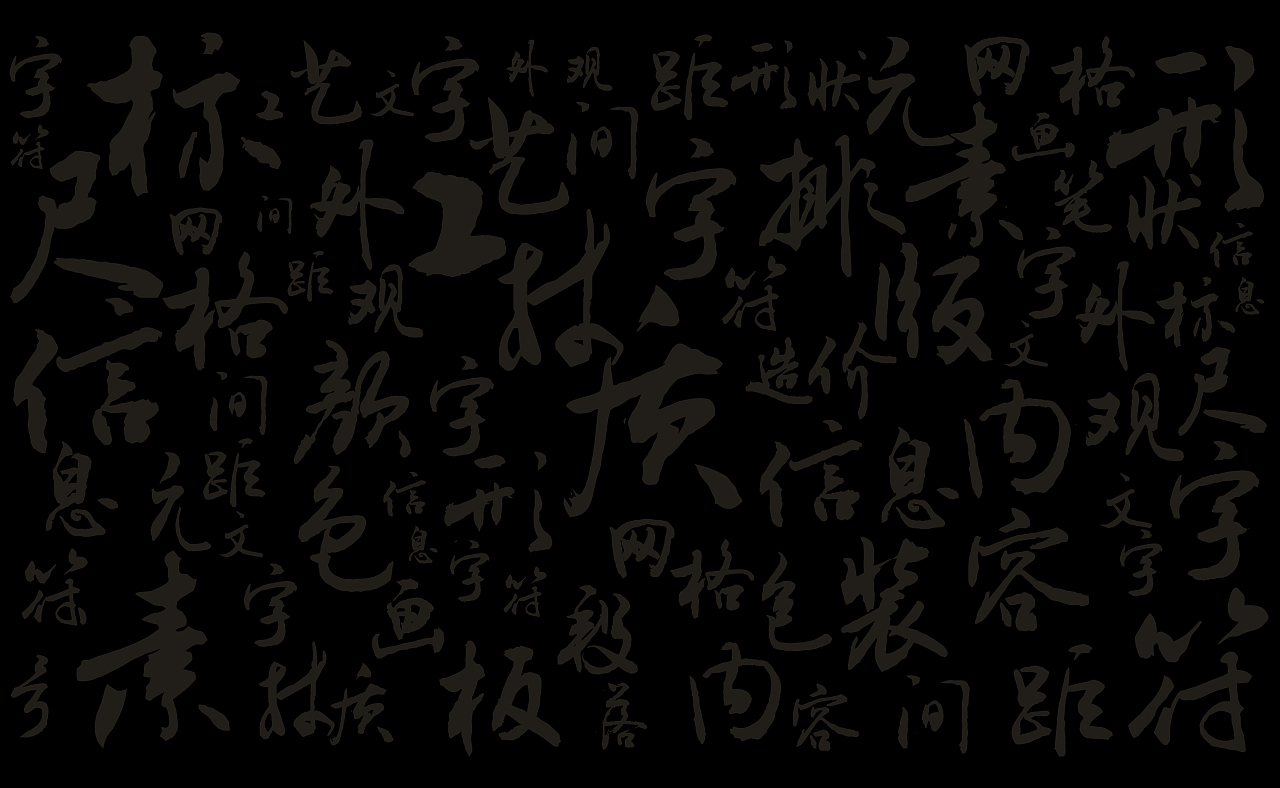 字符
标尺
工艺
文字
外观
间距
形状
元素
网格
画笔
形状
信息
网格
间距
外观
工艺
材质
字符
排版
文字
外观
标尺
信息
元素
间距
文字
颜色
信息
字形
字符
造价
内容
信息
文字
字符
符号
材质
画板
网格
段落
色
内容
装
间距